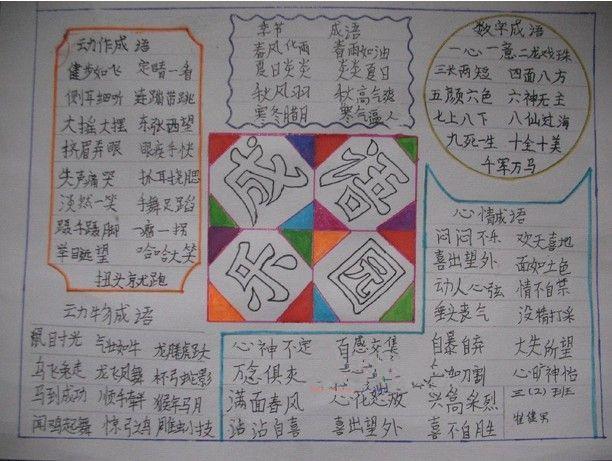 动作成语
健步如飞 定睛一看
侧耳细听 连蹦带跳
大摇大摆 东张西望
挤眉弄眼 眼疾手快
失声痛哭 抓耳挠腮
淡然一笑 手舞足蹈
蹑手蹑脚 一瘸一拐
举目远望 哈哈大笑
扭头就跑
季节 成语
春风化雨 春雨如油
夏日炎炎 炎炎夏日
秋风 秋高气爽
寒冬腊月 寒气逼人
数字成语
一心一意 二龙戏珠
三长两短 四面八方
五颜六色 六神无主
七上八下 八仙过海
九死一生 十全十美
千军万马
成语
乐园
心情成语
闷闷不乐 欢天喜地
喜出望外 面如土色
动人心弦 情不自禁
垂头丧气 没精打采
心神不定 百感交集 自暴自弃 大失所望
万念俱灰 心如刀割 心旷神怡
满面春风 心花怒放 兴高采烈
沾沾自喜 喜出望外 喜不自胜
三(2)班
动物成语
鼠目寸光 气壮如牛 龙腾虎跃
乌飞兔走 龙飞凤舞 杯弓蛇影
马到成功 顺手牵羊 猴年马月
闻鸡起舞 惊弓之鸟 雕虫小技